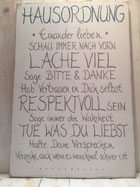 HAUSORDNUNG
Einander lieben
SCHAU IMMER NACH VORN
LACHE VIEL
Sage BITTE & DANKE
Hab Vertrauen in Dich selbst
RESPEKTVOLL SEIN
Sage immer die Wahrheit
TUE WAS DU LIEBST
Halte Deine Versprechen
Verzeihe, auch wenn es manchmal schwer ist